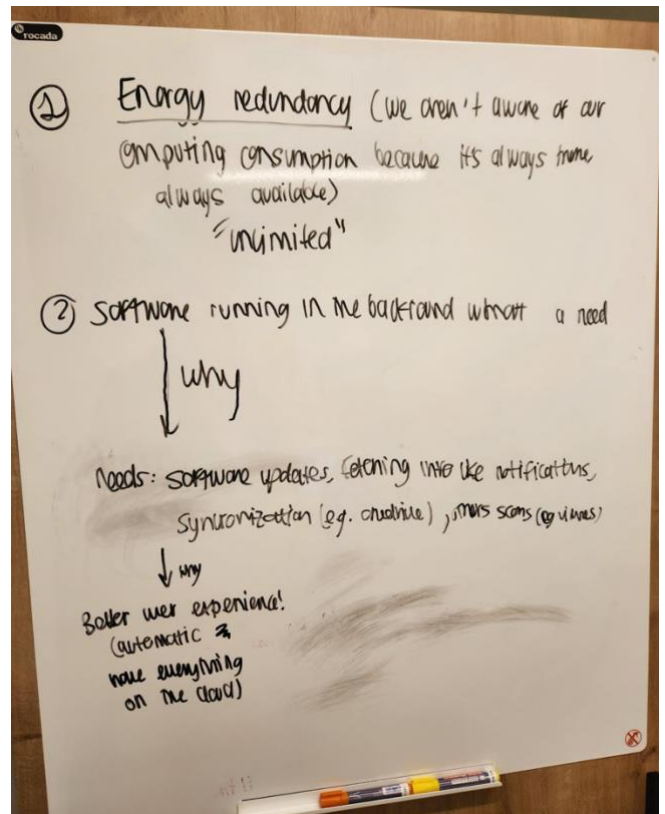 rocada
① Energy redundancy (we aren't aware of our
computing consumption because it's always there
always available)
"unlimited"
② Software running in the background without a need
why
Needs: software updates, fetching info like notifications,
syncronization (eg. onedrive), scans (eg viruses)
why
Better user experience!
(automatic
have everything
on the cloud)